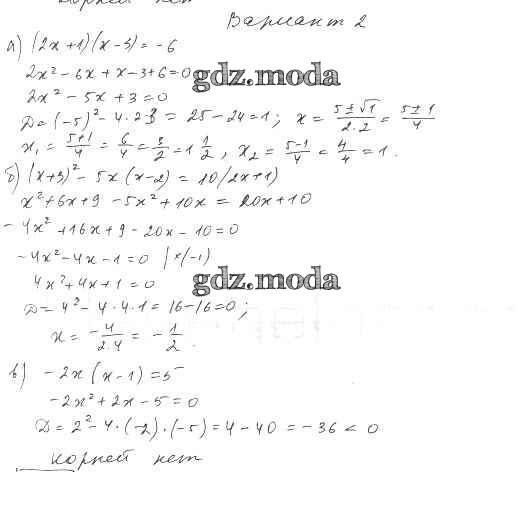 корней нет
Вариант 2
а) (2x+1)(x-3)=-6
2x²-6x+x-3+6=0
gdz.moda
2x²-5x+3=0
D=(-5)²-4·2·3=25-24=1; x=(5±√1)/(2·2)=(5±1)/4
x₁=(5+1)/4=6/4=3/2=1 1/2, x₂=(5-1)/4=4/4=1.
б) (x+3)²-5x(x-2)=10(2x+1)
x²+6x+9-5x²+10x=20x+10
-4x²+16x+9-20x-10=0
-4x²-4x-1=0 |×(-1)
4x²+4x+1=0
gdz.moda
D=4²-4·4·1=16-16=0;
x=-4/(2·4)=-1/2.
в) -2x(x-1)=5
-2x²+2x-5=0
D=2²-4·(-2)·(-5)=4-40=-36<0
корней нет